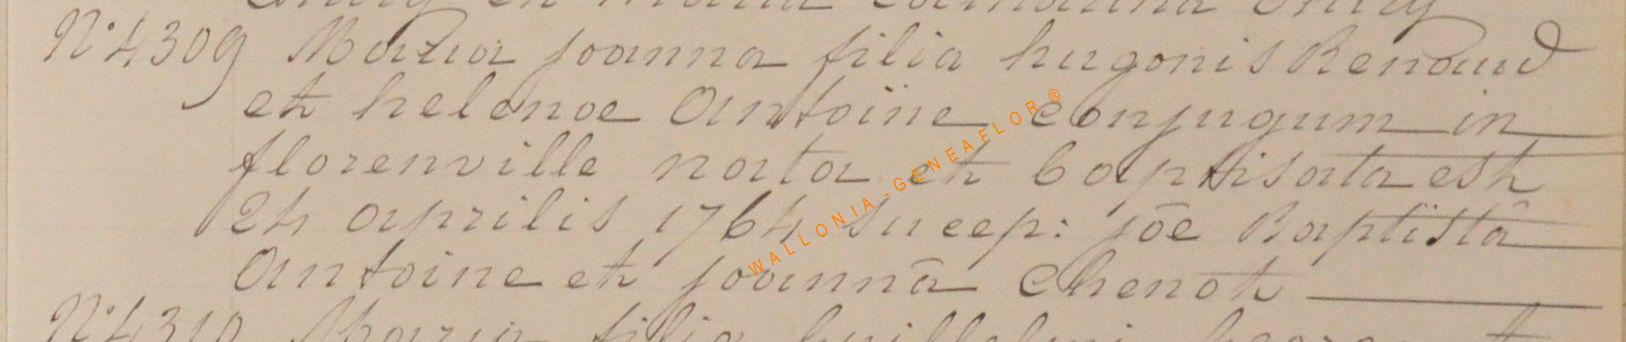 N° 4309 Maria joanna filia hugonis Renaud
et helenoe Antoine conjugum in
florenville nata et baptisata est
24 aprilis 1764 suscep: jōe Baptistâ
Antoine et joannâ Chenot
N° 4310 Maria filia
WALLONIA-GENEAFLOR®